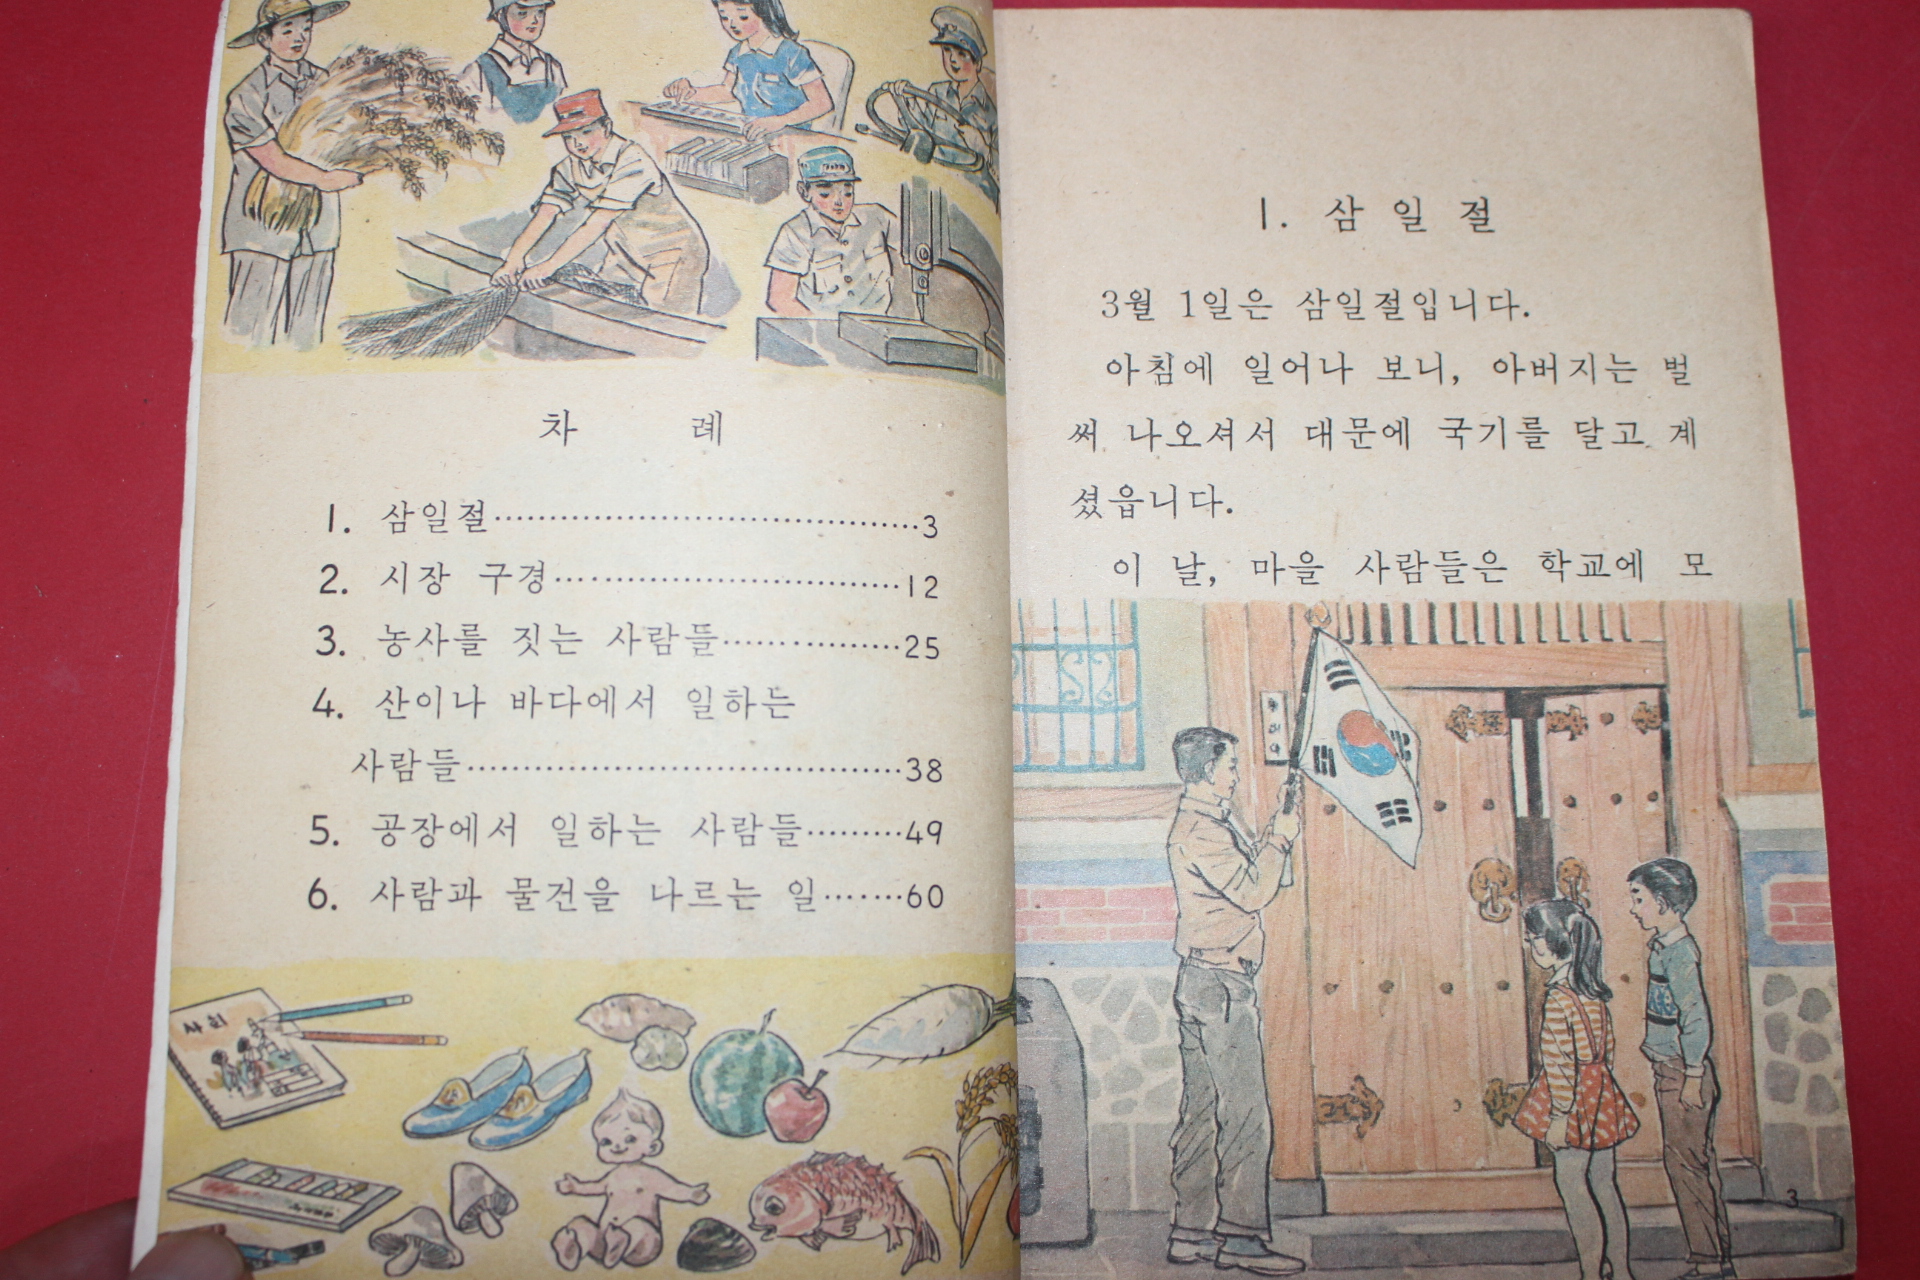 차 례
1. 삼일절……………………………………3
2. 시장 구경………………………………12
3. 농사를 짓는 사람들………………25
4. 산이나 바다에서 일하는
사람들……………………………………38
5. 공장에서 일하는 사람들………49
6. 사람과 물건을 나르는 일………60
사회
1. 삼 일 절
3월 1일은 삼일절입니다.
아침에 일어나 보니, 아버지는 벌
써 나오셔서 대문에 국기를 달고 계
셨읍니다.
이 날, 마을 사람들은 학교에 모
3